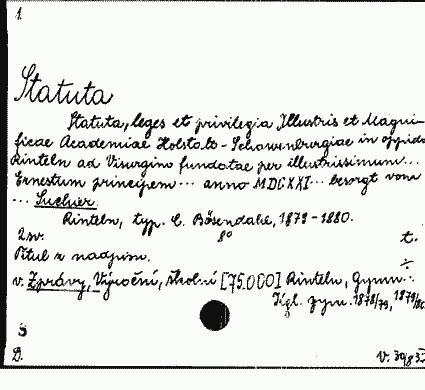 1.
Statuta
Statuta, leges et privilegia Illustris et Magni-
ficae Academiae Holsato-Schawenburgiae in oppido
Rinteln ad Visurgim fundatae per illustrissimum...
Ernestum principem... anno MDCXXI... besorgt vom
... Suchier.
Rinteln, typ. C. Bösendahl, 1879-1880.
2 sv. 8° t.
Titul z nadpisu.
v. Zprávy, Výroční, školní [75.000] Rinteln, Gymn.
Kgl. gymn. 1878/79, 1879/80.
D.